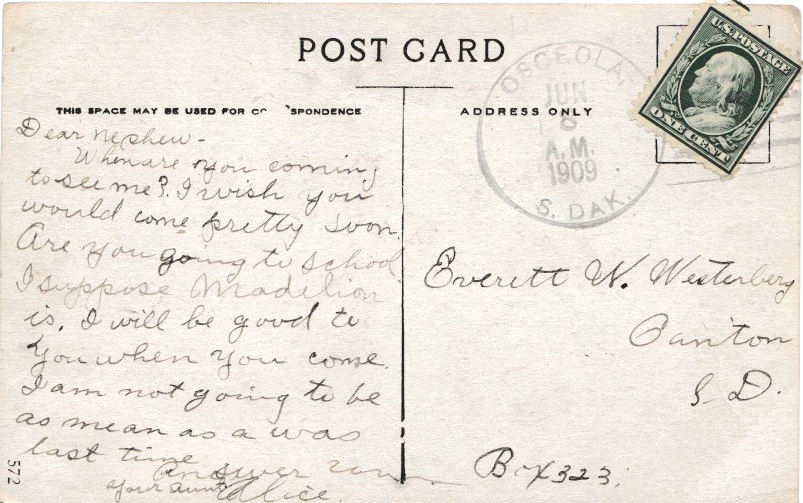 POST CARD
THIS SPACE MAY BE USED FOR CO SPONDENCE
ADDRESS ONLY
OSCEOLA,
JUN
8
A.M.
1909
S. DAK.
U.S. POSTAGE
ONE CENT
Dear nephew -
When are you coming
to see me? I wish you
would come pretty soon.
Are you going to school
I suppose Madelion
is. I will be good to
you when you come.
I am not going to be
as mean as a was
last time
answer
your aunt
Alice.
Everett W. Westerberg
Canton
S. D.
Box 323.
572